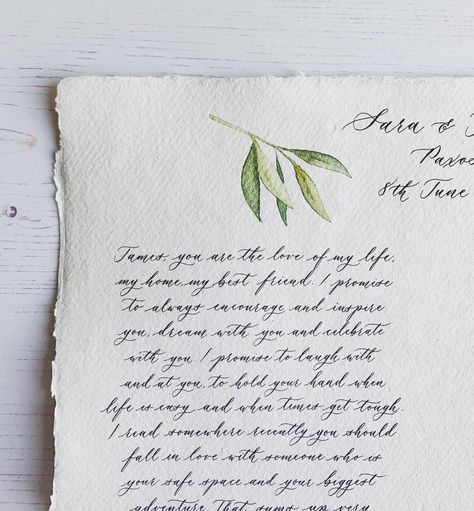 Sara &
Paxo
8th June
James, you are the love of my life,
my home, my best friend. I promise
to always encourage and inspire
you, dream with you and celebrate
with you. I promise to laugh with
and at you, to hold your hand when
life is easy and when times get tough.
I read somewhere recently you should
fall in love with someone who is
your safe space and your biggest
adventure. That sums up very